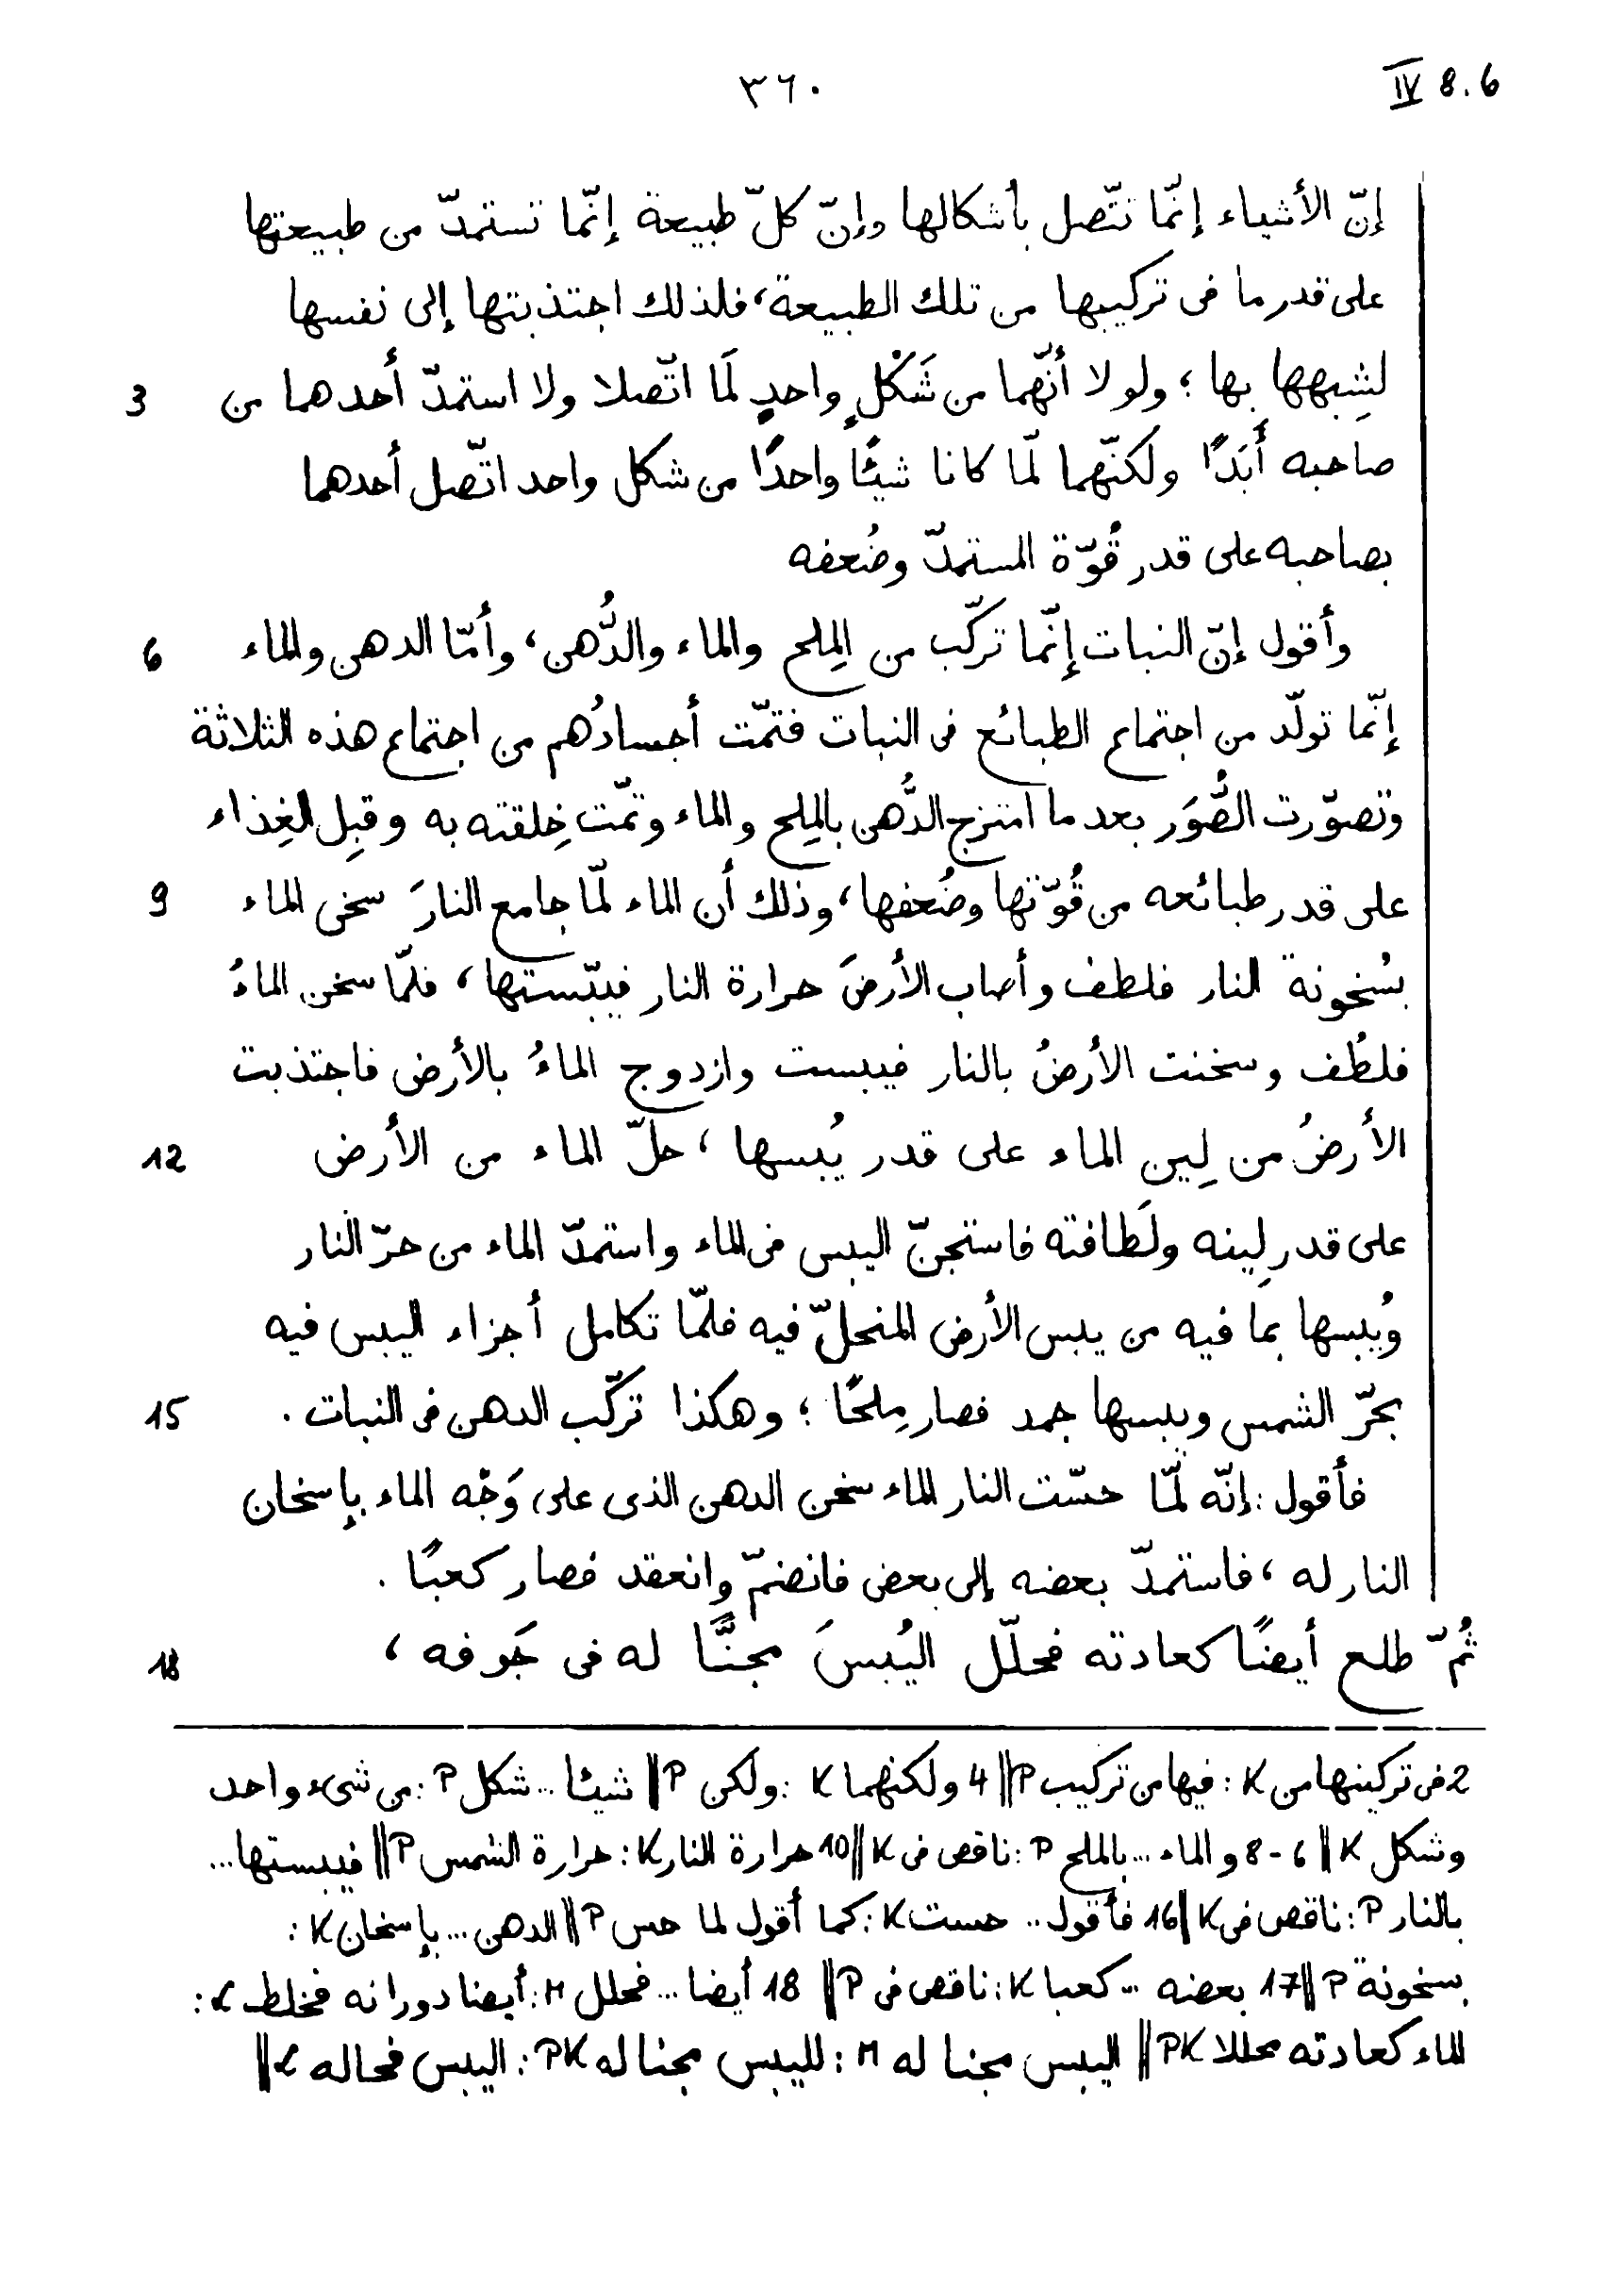 ٣٦٠ IV 8.6
إنّ الأشياء إنّما تتّصل بأشكالها وإنّ كلّ طبيعة إنّما تستمدّ من طبيعتها
على قدر ما فى تركيبها من تلك الطبيعة، فلذلك اجتذبتها إلى نفسها
لشِبهها بها؛ ولولا أنّهما من شَكْلٍ واحدٍ لَما اتّصلا ولا استمدّ أحدهما من 3
صاحبه أبَدًا ولكنّهما لمّا كانا شيئًا واحدًا من شكل واحد اتّصل أحدهما
بصاحبه على قدر قُوّة المستمدّ وضُعفه
وأقول إنّ النبات إنّما تركّب من المِلح والماء والدُّهن، وأمّا الدهن والماء 6
إنّما تولّد من اجتماع الطبائع فى النبات فتمّت أجسادُهم من اجتماع هذه الثلاثة
وتصوّرت الصُّوَر بعد ما امتزج الدُّهن بالمِلح والماء وتمّت خِلقته به وقبِل الغِذاء
على قدر طبائعه من قُوّتها وضُعفها، وذلك أن الماء لمّا جامع النارَ سخن الماء 9
بسُخونة النار فلطف وأصاب الأرضَ حرارة النار فيبّستها، فلمّا سخن الماءُ
فلطُف وسخنت الأرضُ بالنار فيبست وازدوج الماءُ بالأرض فاجتذبت
الأرضُ من لِين الماء على قدر يُبسها، حلّ الماء من الأرض 12
على قدر لِينه ولَطافته فاستجنّ اليبس فى الماء واستمدّ الماء من حرّ النار
ويُبسها بما فيه من يبس الأرض المنحلّ فيه فلمّا تكامل أجزاء اليبس فيه
بحرّ الشمس ويبسها جمد فصار مِلحًا؛ وهكذا تركّب الدهن فى النبات. 15
فأقول: إنّه لمّا حسّت النار الماء سخن الدهن الذى على وَجْه الماء بإسخان
النار له، فاستمدّ بعضه إلى بعض فانضمّ وانعقد فصار كعبًا.
ثُمّ طلع أيضًا كعادته فحلّل اليُبسَ مجنًّا له فى جَوفه، 18
2 فى تركيبها من K: فيها من تركيب P || 4 ولكنهما K: ولكن P || شيئا .. شكل P: من شىء واحد
وشكل K || 6-8 والماء ... بالملح P: ناقص فى K || 10 حرارة النار K: حرارة الشمس P || فيبستها ...
بالنار P: ناقص فى K || 16 فأقول .. حست K: كما أقول لما حس P || الدهن ... بإسخان K:
بسخونة P || 17 بعضه .. كعبا K: ناقص فى P || 18 أيضا ... فحلل M: أيضا دورانه فخلط L:
الماء كعادته محللا PK || اليبس مجنا له M: لليبس مجنا له PK: اليبس فحاله L ||